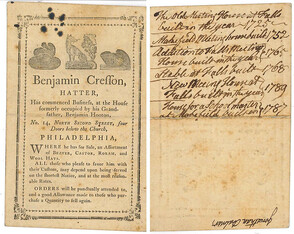 Benjamin Cresson,
HATTER,
Has commenced Business, at the House
formerly occupied by his Grand-
father, Benjamin Hooton,
No. 14, NORTH SECOND STREET, four
Doors below the Church,
PHILADELPHIA,
WHERE he has for Sale, an Assortment
of BEAVER, CASTOR, RORAM, and
WOOL HATS.
ALL those who please to favor him with
their Custom, may depend upon being served
on the shortest Notice, and at the most reason-
able Rates.
ORDERS will be punctually attended to,
and a good Allowance made to those who pur-
chase a Quantity to sell again.
The Old Meeting House at Falls
built in the year 1728
Makefield Meeting house built 1752
Addition to Falls Meeting
House built in the year 1765
Stable at Falls built 1768
New Meeting House at
Falls built in the year 1789
House for School
at Makefield built in 1787
Jonathan Palmer